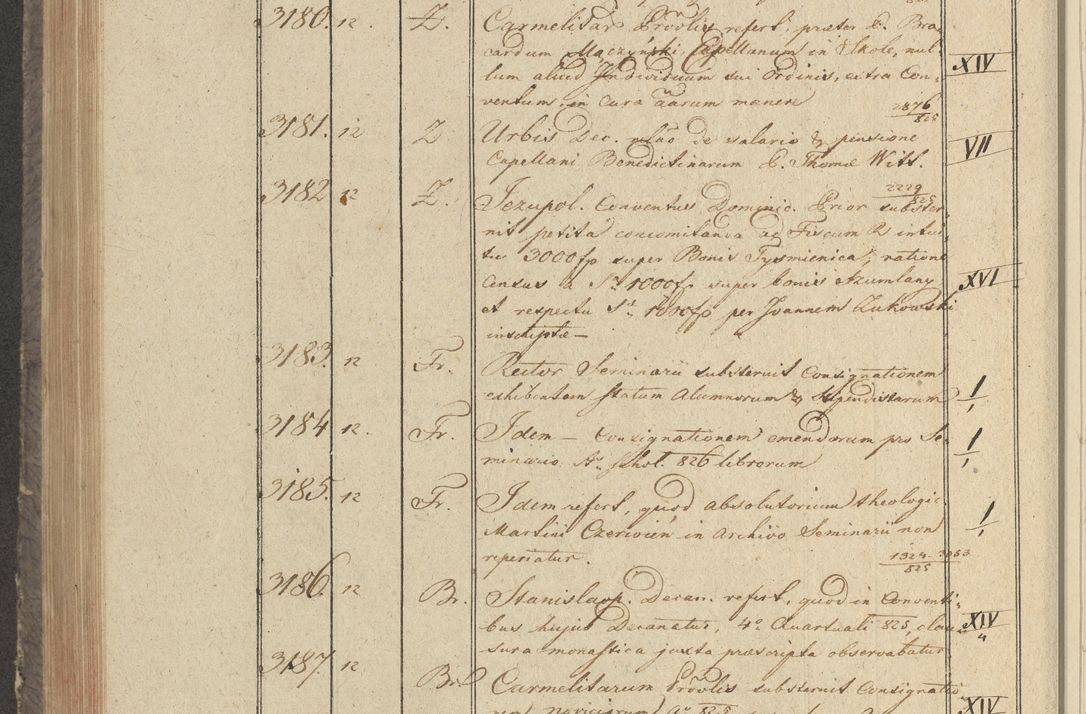 3180. 12 Z. Carmelitar Provlis refert, praeter P. Bro-
cardum Maczyński, Capellanum in Skole, nul-
lum aliud Individuum sui Ordinis, extra Con-
ventum, in cura aarum manere XIV
2876/825
3181. 12 Z Urbis Dec. rlão de salario & pensione VII
Capellani Benedictinarum P. Thoma Witt.
2229/825
3182 12 Z. Jezupol. Conventus Dominic. Prior subster-
nit petita concomitanda ad Fiscum intui-
tu 3000 fp super Bonis Tysmienica, ratione
Census a Sa 1000 fp super bonis XVI
et respectu Sa fp per Joannem Zukowski
inscriptae —
3183. 12 Fr. Rector Seminarii substernit Consignationem
exhibentem statum Alumnorum & Stipendistarum 1/1
3184 12. Fr. Idem — Consignationem emendorum pro Se-
minario Ao Schol. 826 librorum 1/1
3185. 12 Fr. Idem refert, quod absolutorium theologic
Martini Czerwień in Archivo Seminarii non 1/1
reperiatur. 1324-3053/825
3186. 12 Br. Stanislaop. Decan. refert, quod in Conventi-
bus hujus Decanatus, 4o Quartali 825, clau- XIV/4
sura monastica juxta praescripta observabatur
3187. 12 Br. Carmelitarum Provlis substernit Consignatio-
nem noviciorum Ao 825 XIV